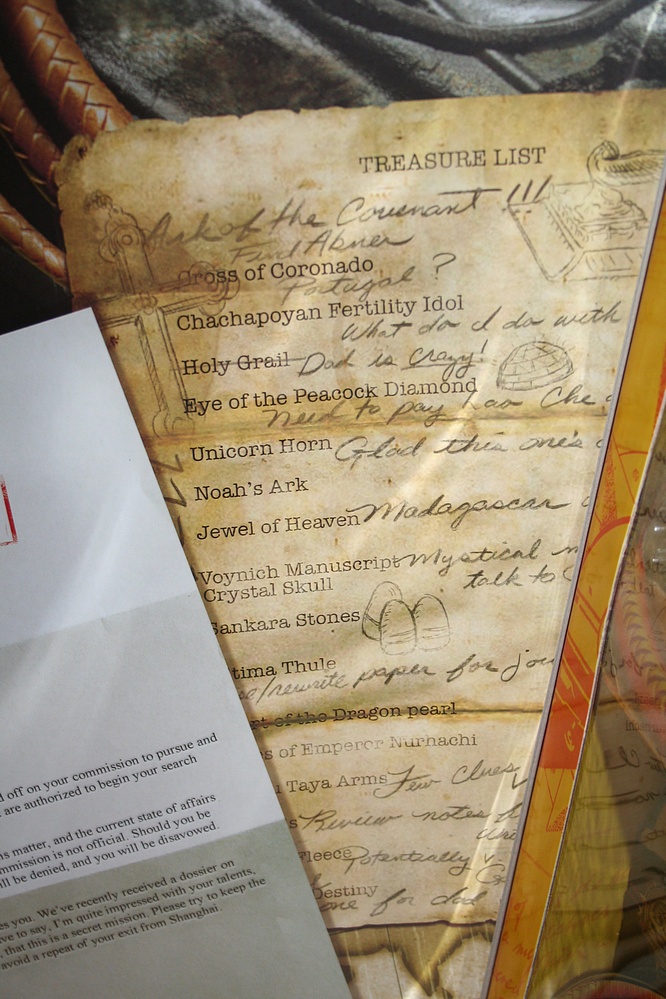 TREASURE LIST
Ark of the Covenant !!!
Find Abner
Cross of Coronado
Portugal ?
Chachapoyan Fertility Idol
What do I do with
Holy Grail Dad is crazy!
Eye of the Peacock Diamond
need to pay Lao Che
Unicorn Horn Glad this one's
Noah's Ark
Jewel of Heaven Madagascar
Voynich Manuscript Mystical
talk to
Crystal Skull
Sankara Stones
tima Thule
rewrite paper for jou
rt of the Dragon pearl
s of Emperor Nurhachi
Taya Arms Few Clues
s Review notes
Fleece Potentially
Destiny
one for dad
d off on your commission to pursue and
are authorized to begin your search
s matter, and the current state of affairs
mmission is not official. Should you be
ll be denied, and you will be disavowed.
es you. We've recently received a dossier on
ve to say, I'm quite impressed with your talents,
, that this is a secret mission. Please try to keep the
avoid a repeat of your exit from Shanghai.